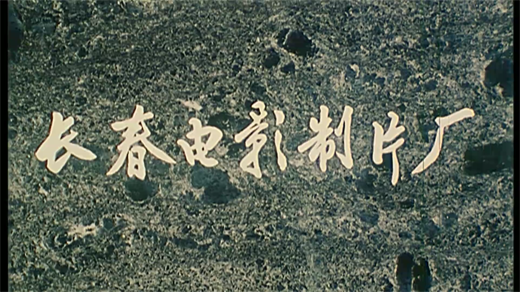 长春电影制片厂